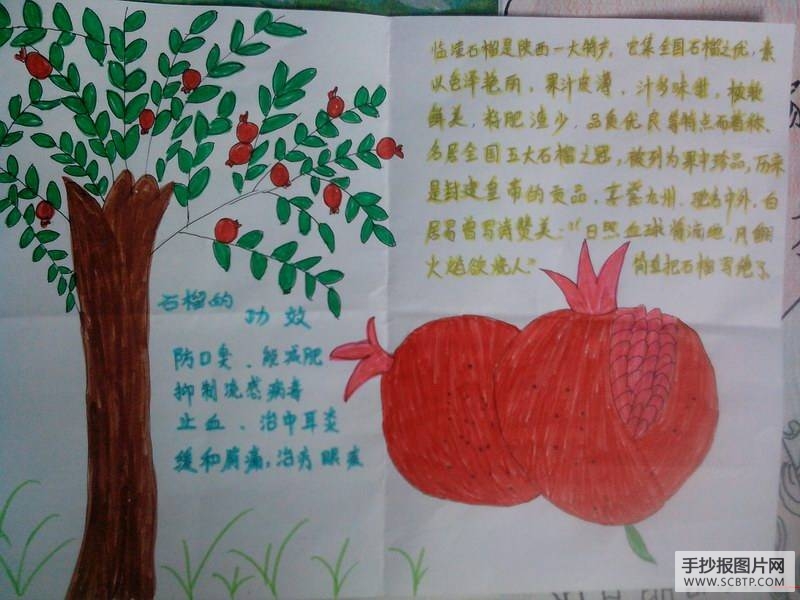 临潼石榴是陕西一大特产，它集全国石榴之优，素
以色泽艳丽，果汁皮薄，汁多味甜，核软
鲜美，籽肥渣少，品质优良等特点而著称、
名居全国五大石榴之冠，被列为果中珍品，历来
是封建皇帝的贡品，享誉九州，驰名中外，白
居易曾写诗赞美："日照血球将滴地，风翻
火焰欲烧人" 简直把石榴写绝了
石榴的
功效
防口臭、能减肥
抑制流感病毒
止血、治中耳炎
缓和肩痛，治疗眼炎
手抄报图片网
WWW.SCBTP.COM